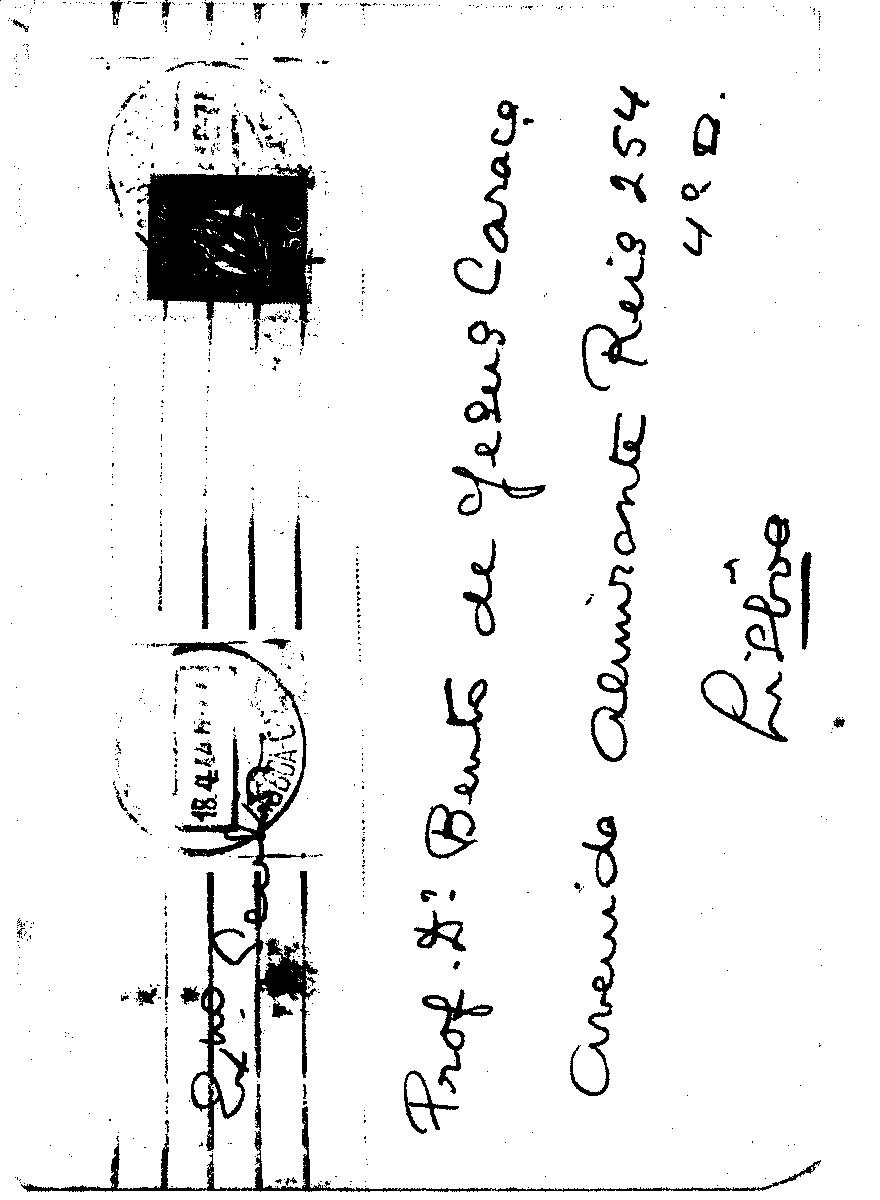 Exmo Senhor
Prof. Dr: Bento de Jesus Caraça
Avenida Almirante Reis 254
4º D.
Lisboa
18.4
50